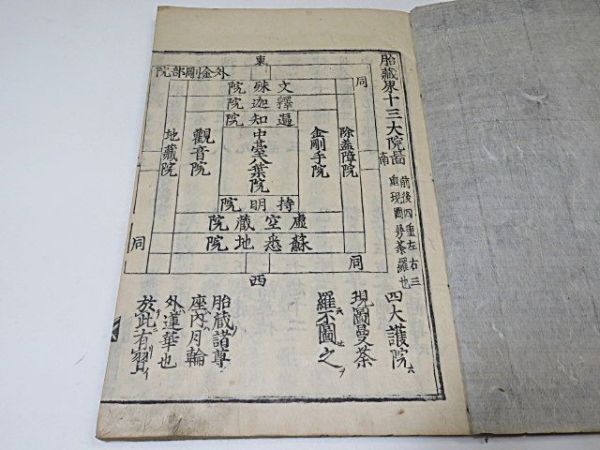 胎藏界十三大院啚
前後四重左右三
重現圖曼荼羅也
東
南
西
同
同
同
外金剛部院
文殊院
釋迦院
遍知院
中臺八葉院
持明院
虛空藏院
蘇悉地院
金剛手院
除蓋障院
觀音院
地藏院
四大護院ハ
現圖曼荼
羅不圖之
胎藏諸尊
座內月輪
外蓮華也
放此有習